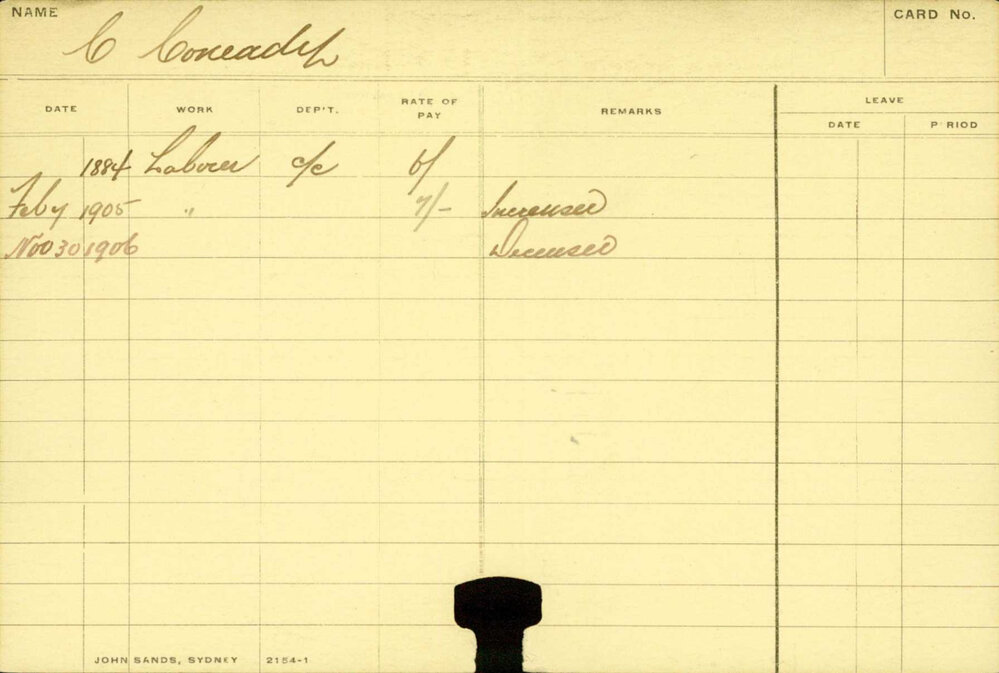 NAME
C Coneady
CARD No.
DATE WORK DEP'T. RATE OF PAY REMARKS LEAVE
DATE P RIOD
1884 Labourer c/c 6/
Feb y 1905 " 7/- Increased
Nov 30 1906 Deceased
JOHN SANDS, SYDNEY 2154-1